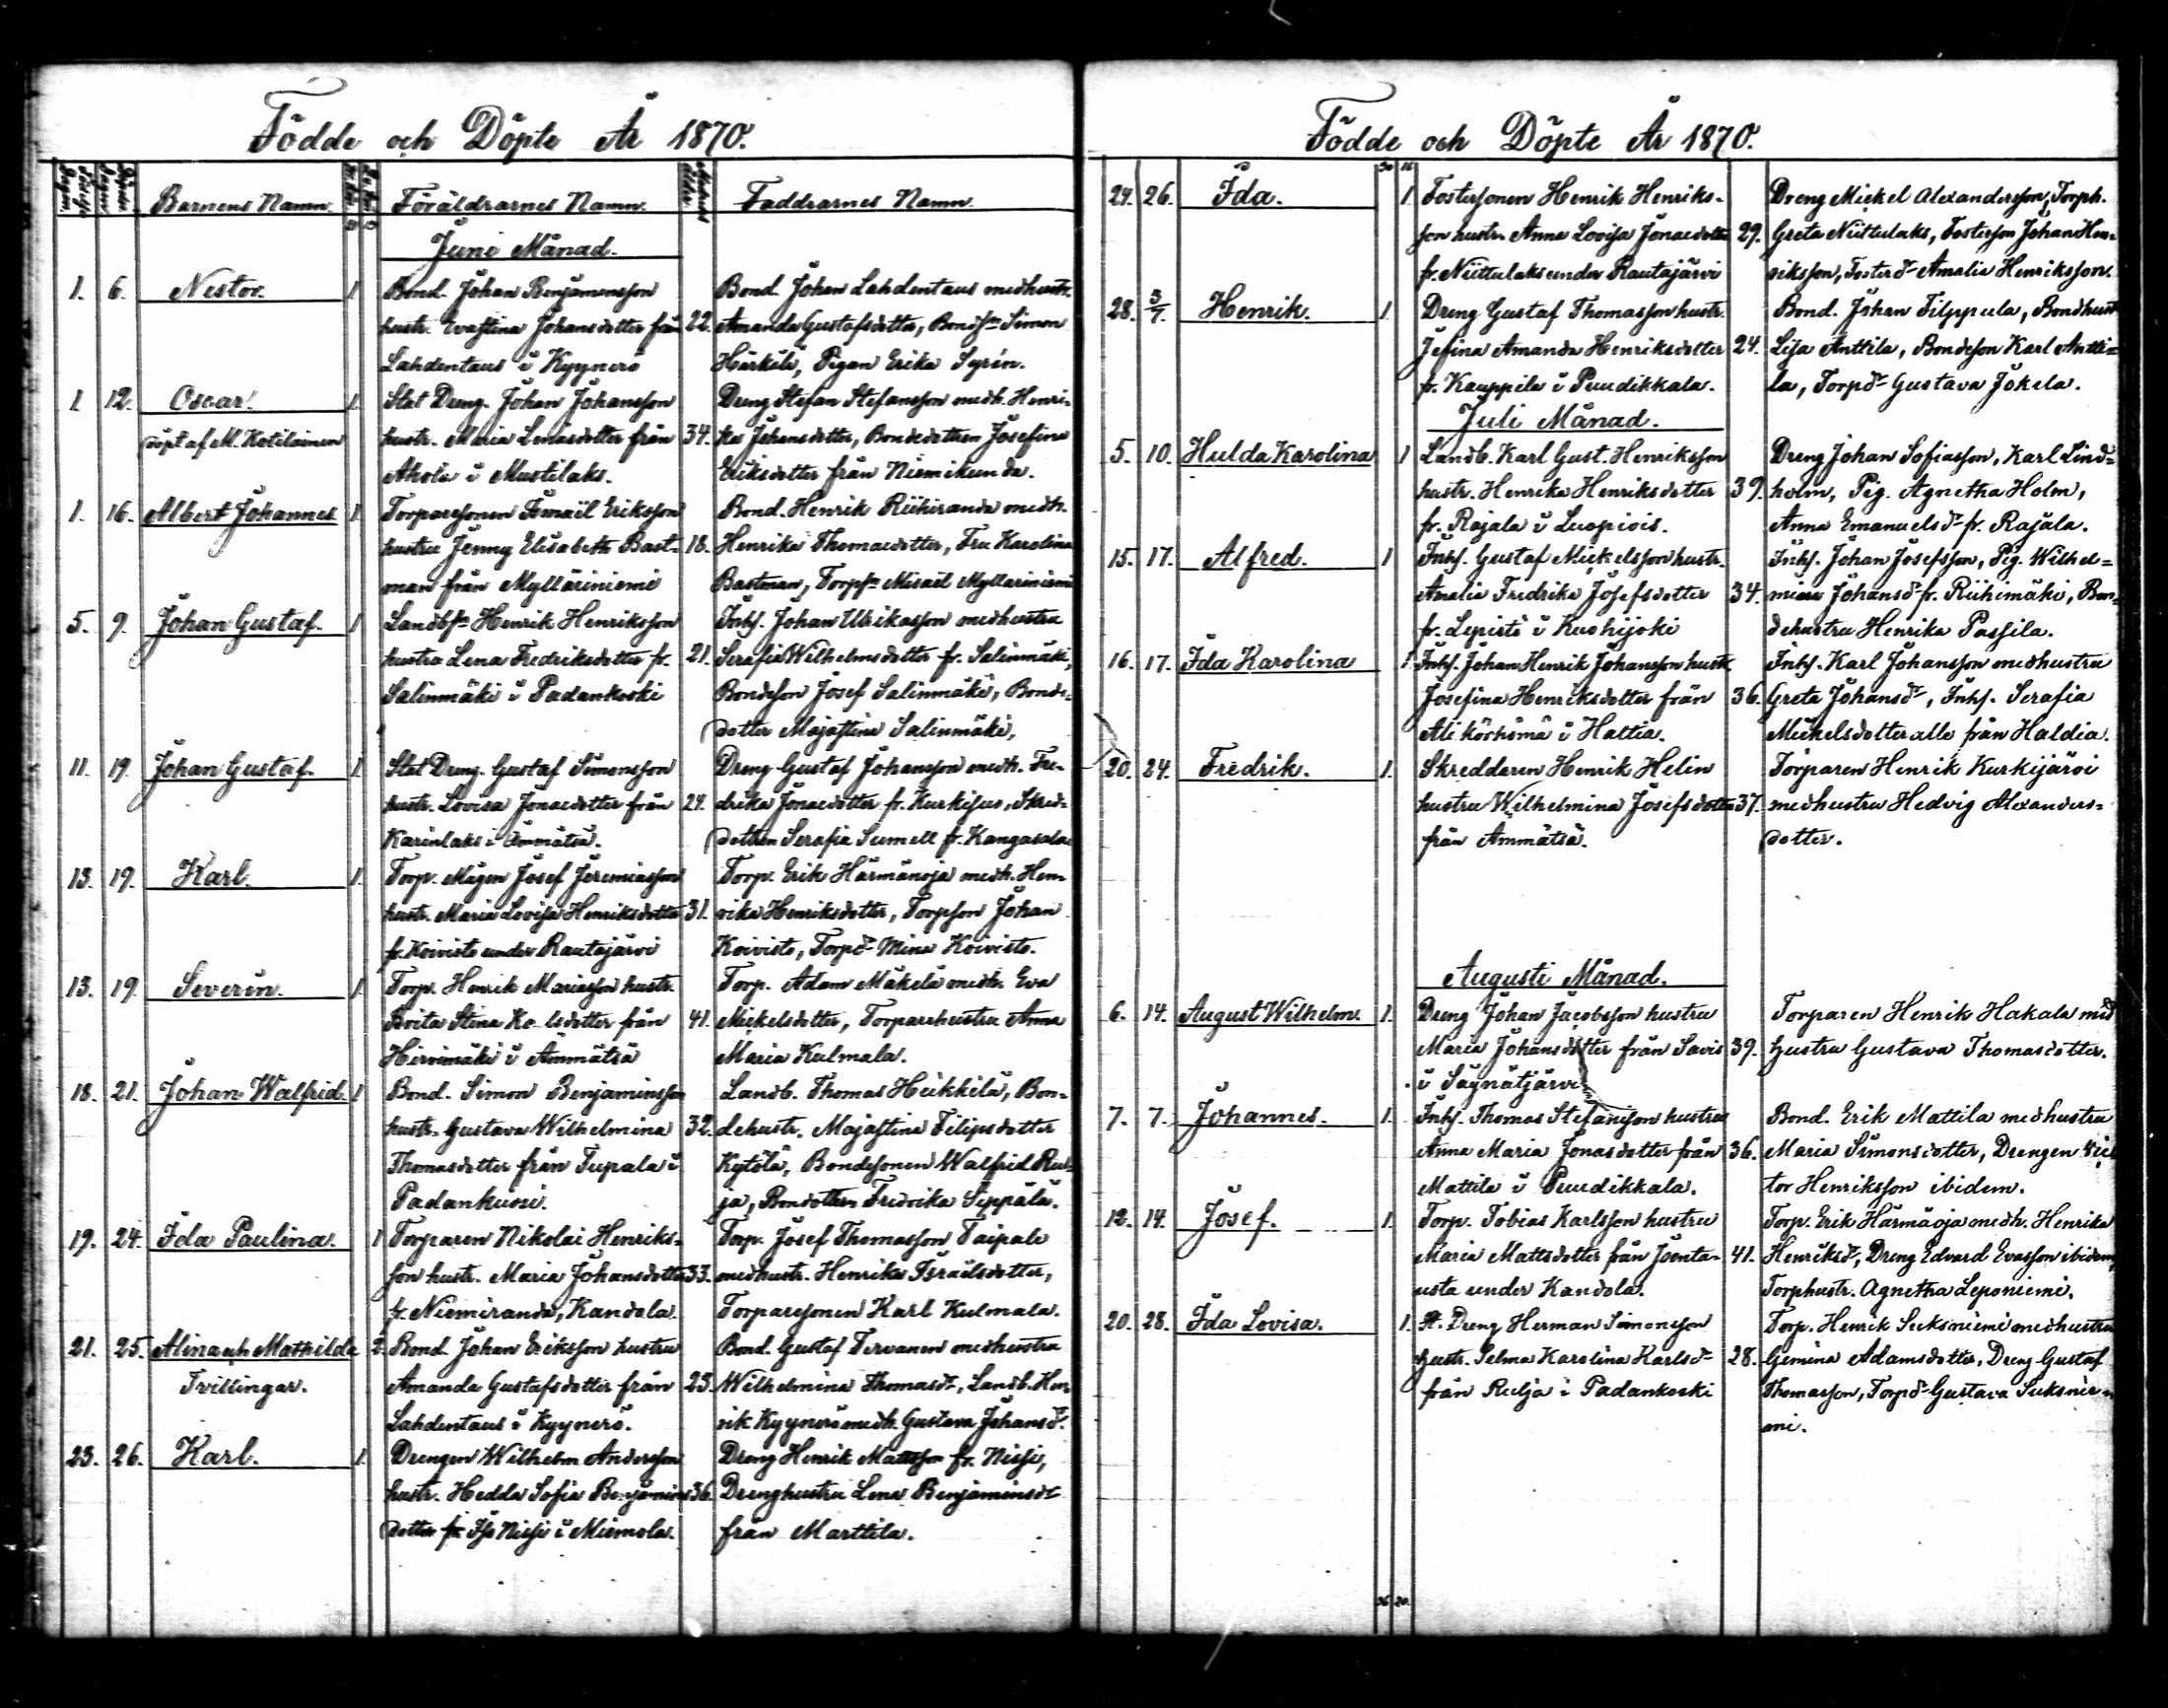 Födde och Döpte År 1870.
Barnens Namn. Föräldrarnes Namn. Faddrarnes Namn.
Juni Månad.
1. 6. Nestor. 1 Bond. Johan Benjamensson Bond. Johan Lahdentaus medhustr.
hustr. Evastina Johansdotter från 22. Amanda Gustafsdotter, Bonds. Simon
Lahdentaus i Kyynerö Härkälä, Pigan Erika Syrén.
1 12. Oscar. 1. Stat Dreng. Johan Johansson Dreng Stefan Stefansson medh. Henri-
döpt af M. Kotilainen hustr. Maria Lenasdotter från 34. ka Johansdotter, Bondedottren Josefina
Ahola i Mustilaks. Eriksdotter från Niemikunda.
1. 16. Albert Johannes 1. Torparesonen Ismaïl Eriksson Bond. Henrik Riihiranda medh.
hustru Jenny Elisabeth Bast- 18. Henrika Thomasdotter, Fru Karolina
man från Mylläriniemi Bastman, Torps. Misael Myllariniemi
5. 9. Johan Gustaf. 1 Landbs. Henrik Henriksson Inhs. Johan Ulrikasson medhustru
hustru Lena Fredriksdotter fr. 21. Serafia Wilhelmsdotter fr. Salinmäki,
Salinmäki i Padankoski Bondeson Josef Salinmäki, Bonde-
dotter Majastina Salinmäki,
11. 19. Johan Gustaf. 1. Stat Dreng. Gustaf Simonsson Dreng Gustaf Johansson medh. Fre-
hustr. Lovisa Jonaedotter från 24. drika Jonaedotter fr. Kurkisuo, Skred-
Karinlaks i Ämmätsä. dottren Serafia Sumell fr. Kangasala
13. 19. Karl. 1. Torp. Mågen Josef Jeremiasson Torp. Erik Härmänoja medh. Hen-
hustr. Maria Lovisa Henriksdotter 31. rika Henriksdotter, Torpson Johan
fr. Koivisto under Rautajärvi Koivisto, Torpdr Mina Koivisto.
13. 19. Severin. 1. Torp. Henrik Mariasson hustr. Torp. Adam Mäkelä medh. Eva
Brita Stina Ka lsdotter från 41. Mickelsdotter, Torparehustru Anna
Hirvimäki i Ämmätsä Maria Kulmala.
18. 21. Johan Walfrid. 1 Bond. Simon Benjaminsson Landb. Thomas Heikkilä, Bon-
hustr. Gustava Wilhelmina 32. dehustr. Majastina Filipsdotter
Thomasdotter från Tupala i Kytölä, Bondesonen Walfrid Rul-
Padankoski. ja, Bondottren Fredrika Seppälä.
19. 24. Ida Paulina. 1 Torparen Nikolai Henriks- Torp. Josef Thomasson Taipale
son hustr. Maria Johansdotter 33. medhustr. Henrika Israelsdotter,
fr. Niemiranda, Kandola. Torparesonen Karl Kulmala.
21. 25. Alina och Mathilda 2. Bond. Johan Eriksson hustru Bond. Gustaf Tervanen medhustru
Tvillingar. Amanda Gustafsdotter från 23. Wilhelmina Thomasdr, Landb. Hen
Lahdentaus i Kyynerö. rik Kyynerö medh. Gustava Johansdr.
23. 26. Karl. 1. Drengen Wilhelm Andersson Dreng Henrik Mattsson fr. Nissi,
hustr. Hedda Sofia Benjamins 36. Drenghustru Lena Benjaminsdr
dotter fr. Iso Nissi i Miemola. från Marttila.
Födde och Döpte År 1870.
24. 26. Ida. 1 Fostersonen Henrik Henriks- Dreng Mickel Alexandersson, Torph.
son hustr. Anna Lovisa Jonaedotter 29. Greta Niittulaks, Fosterson Johan Hen-
fr. Niittulaks under Rautajärvi riksson, Fosterdr Amalia Henriksson.
28. 3/7. Henrik. 1. Dreng Gustaf Thomasson hustr. Bond. Johan Filppula, Bondhust
Jefina Amanda Henriksdotter 24. Lisa Anttila, Bondeson Karl Antti-
fr. Kauppila i Puudikkala. la, Torpdr Gustava Jokela.
Juli Månad.
5. 10. Hulda Karolina 1 Landb. Karl Gust. Henriksson Dreng Johan Sofiasson, Karl Lind-
hustr. Henrika Henriksdotter 39. holm, Pig. Agnetha Holm,
fr. Rajala i Luopiois. Anna Emanuelsdr fr. Rajala.
15. 17. Alfred. 1 Inhs. Gustaf Mickelsson hustr. Inhs. Johan Josefsson, Pig. Wilhel-
Amalia Fredrika Josefsdotter 34. mina Johansdr fr. Riihimäki, Bon-
fr. Lepistö i Kuohijoki dehustru Henrika Passila.
16. 17. Ida Karolina 1 Inhs. Johan Henrik Johansson hustr. Inhs. Karl Johansson medhustru
Josefina Henriksdotter från 36. Greta Johansdr, Inhs. Serafia
Ali körhömä i Haltia. Mickelsdotter alle från Haldia.
20. 24. Fredrik. 1. Skreddaren Henrik Helin Torparen Henrik Kurkijärvi
hustru Wilhelmina Josefsdotter 37. medhustru Hedvig Alexanders-
från Ammätsä. dotter.
Augusti Månad.
6. 14. August Wilhelm. 1. Dreng Johan Jacobsson hustru Torparen Henrik Hakala med
Maria Johansdotter från Savis 39. hustru Gustava Thomasdotter.
i Säynätjärvi
7. 7. Johannes. 1. Inhs. Thomas Stefansson hustru Bond. Erik Mattila medhustru
Anna Maria Jonasdotter från 36. Maria Simonsdotter, Drengen Vic
Mattila i Puudikkala. tor Henriksson ibidem.
12. 14. Josef. 1. Torp. Tobias Karlsson hustru Torp. Erik Härmäoja medh. Henrika
Maria Mattsdotter från Jsonta- 41. Henriksdr, Dreng Edvard Evasson ibidem,
usta under Kandola. Torphustr. Agnetha Leponiemi.
20. 28. Ida Lovisa. 1. St. Dreng Herman Simonsson Torp. Henrik Suksniemi medhustru
hustr. Selma Karolina Karlsdr 28. Gemina Adamsdotter, Dreng Gustaf
från Rulja i Padankoski Thomasson, Torpdr Gustava Suksnie-
mi.
36 20.